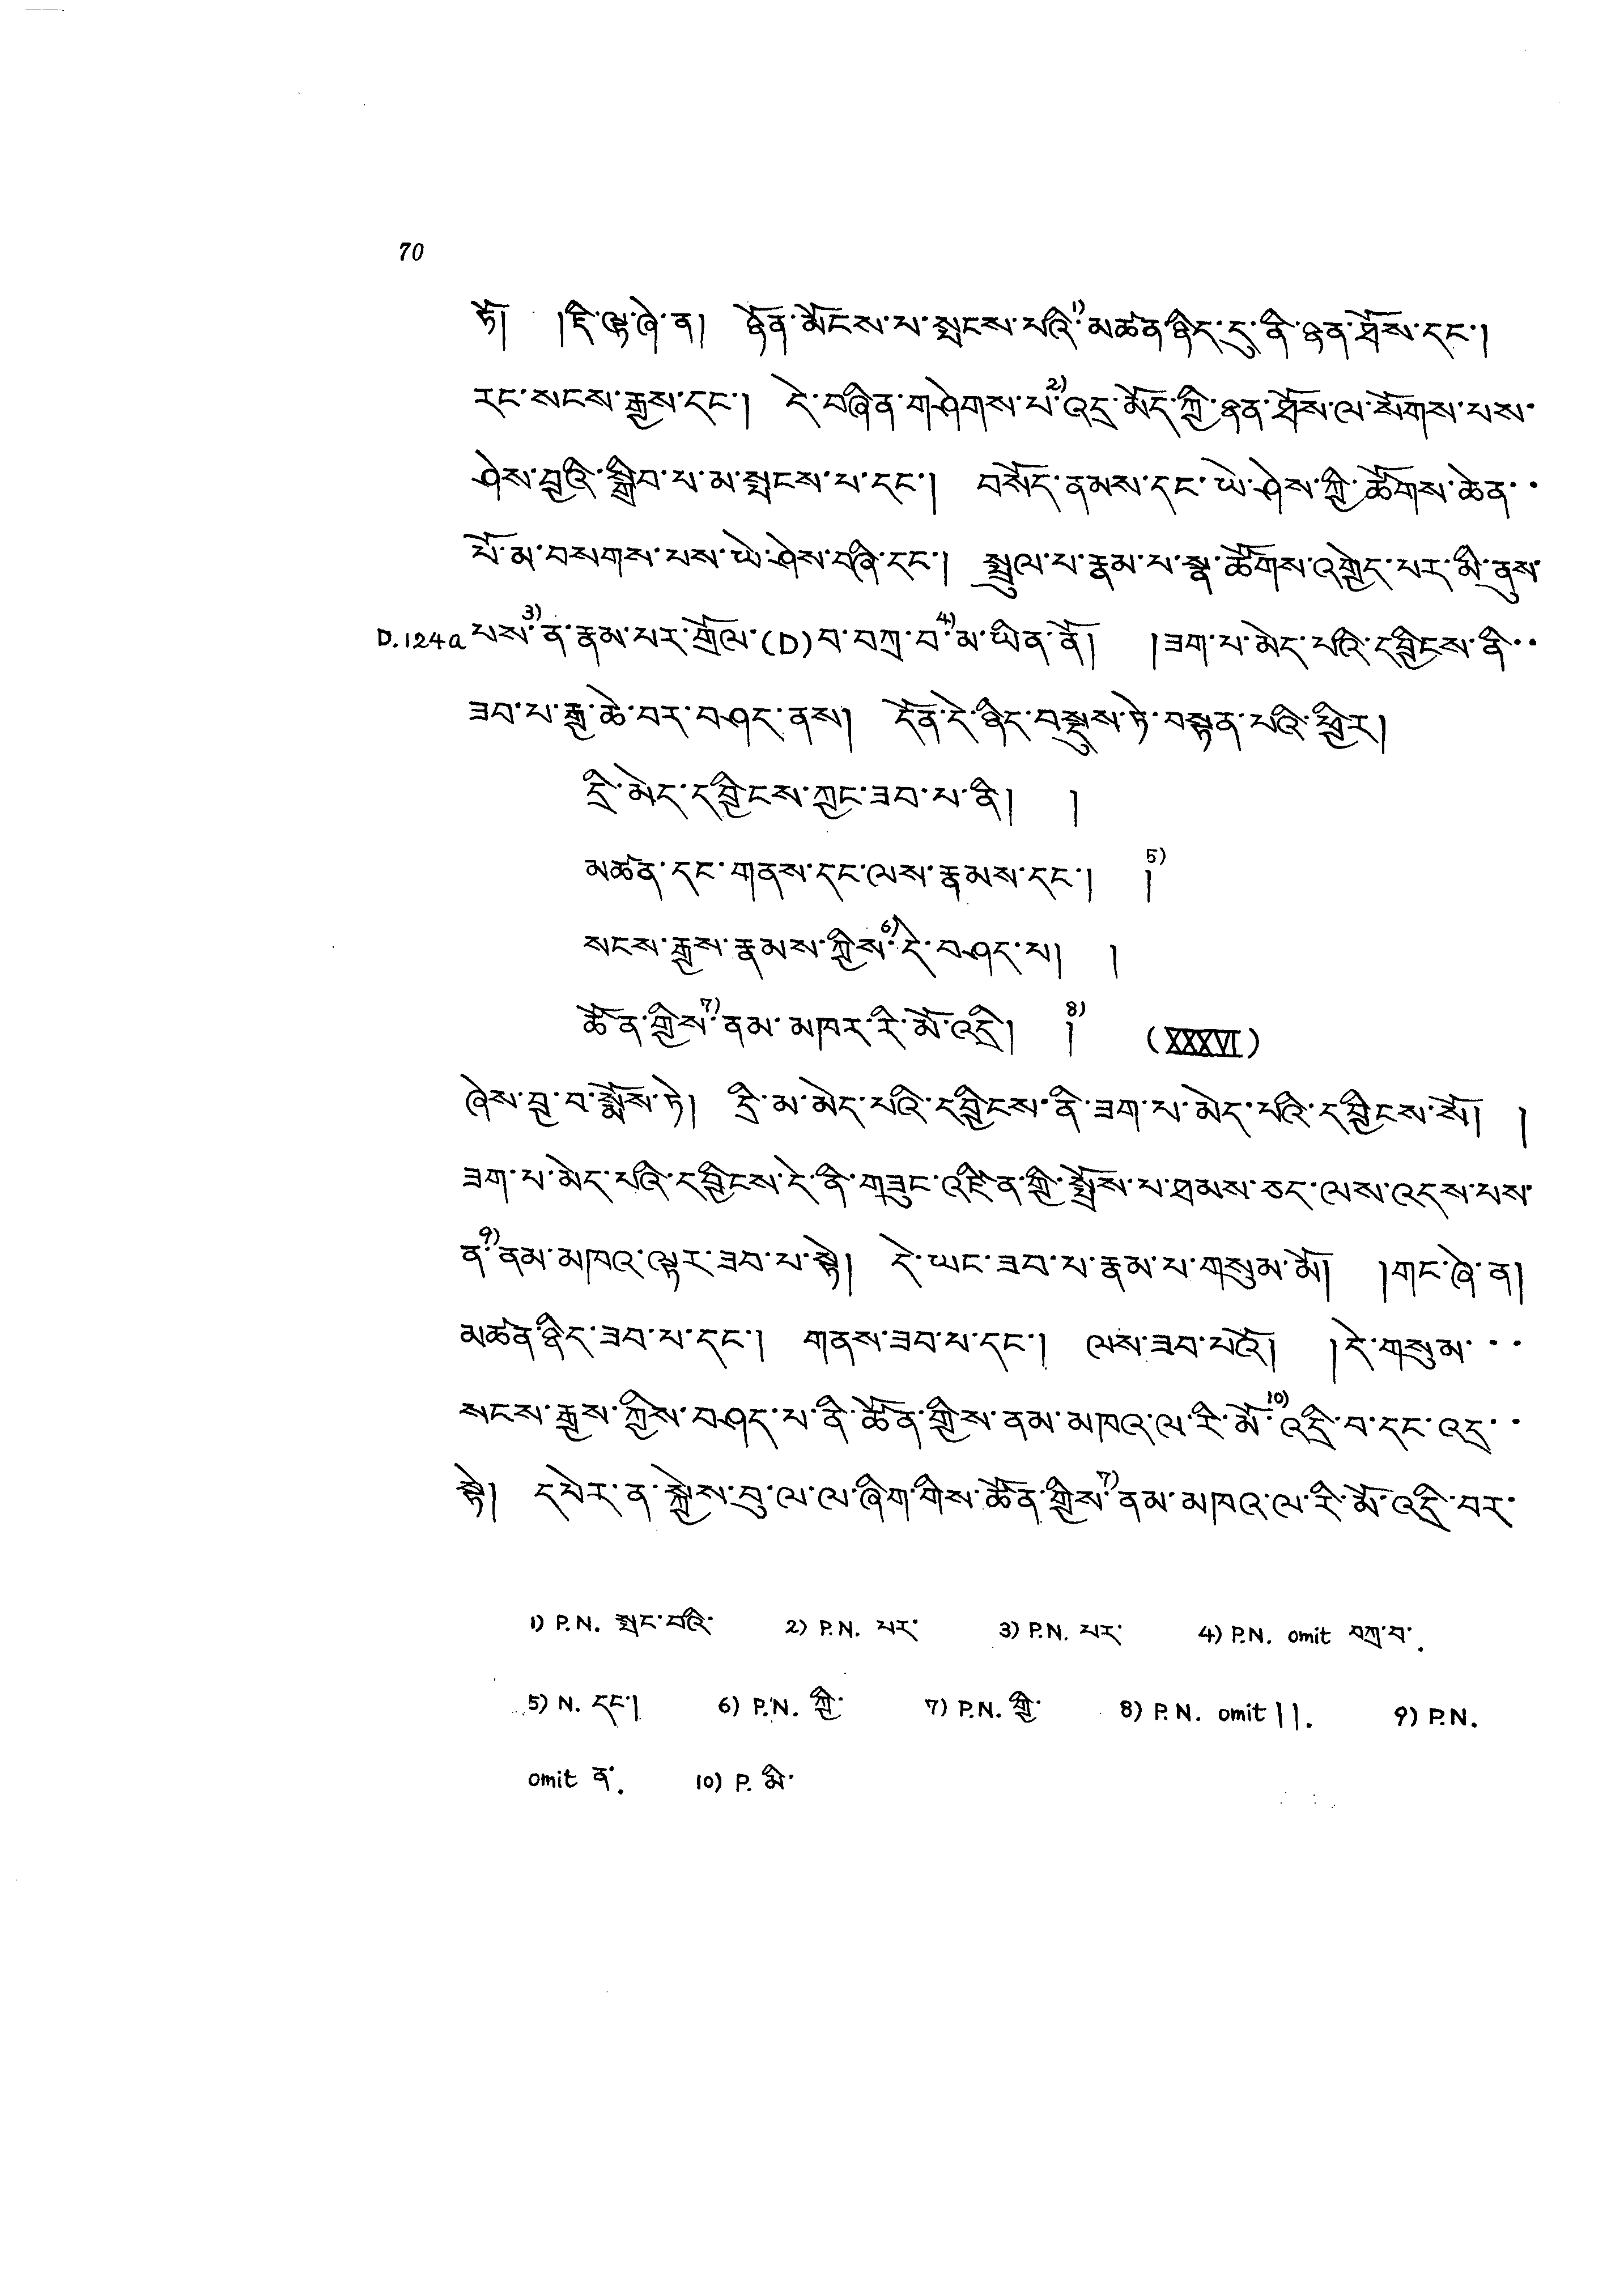 70
ཏོ། །ཇི་ལྟ་ཞེ་ན། ཉོན་མོངས་པ་སྤངས་པའི་1)མཚན་ཉིད་དུ་ནི་ཉན་ཐོས་དང་།
རང་སངས་རྒྱས་དང་། དེ་བཞིན་གཤེགས་པ་2)འདྲ་མོད་ཀྱི་ཉན་ཐོས་ལ་སོགས་པས་
ཤེས་བྱའི་སྒྲིབ་པ་མ་སྤངས་པ་དང་། བསོད་ནམས་དང་ཡེ་ཤེས་ཀྱི་ཚོགས་ཆེན་་
པོ་མ་བསགས་པས་ཡེ་ཤེས་བཞི་དང་། སྤྲུལ་པ་རྣམ་པ་སྣ་ཚོགས་འགྱེད་པར་མི་ནུས་
D.124a པས་3)ན་རྣམ་པར་གྲོལ་(D)བ་བཀྲ་བ་4)མ་ཡིན་ནོ། །ཟག་པ་མེད་པའི་དབྱིངས་ནི་་
ཟབ་པ་རྒྱ་ཆེ་བར་བཤད་ནས། དོན་དེ་ཉིད་བསྡུས་ཏེ་བསྟན་པའི་ཕྱིར།
དྲི་མེད་དབྱིངས་ཀྱང་ཟབ་པ་ནི། །
མཚན་དང་གནས་དང་ལས་རྣམས་དང་། །5)
སངས་རྒྱས་རྣམས་ཀྱིས་6)དེ་བཤད་པ། །
ཚོན་གྱིས་7)ནམ་མཁར་རི་མོ་འདྲི། །8) (XXXVI)
ཞེས་བྱ་བ་སྨོས་ཏེ། དྲི་མ་མེད་པའི་དབྱིངས་ནི་ཟག་པ་མེད་པའི་དབྱིངས་སོ། །
ཟག་པ་མེད་པའི་དབྱིངས་དེ་ནི་གཟུང་འཛིན་གྱི་སྤྲོས་པ་ཐམས་ཅད་ལས་འདས་པས་
ན་9)ནམ་མཁའ་ལྟར་ཟབ་པ་སྟེ། དེ་ཡང་ཟབ་པ་རྣམ་པ་གསུམ་མོ། །གང་ཞེ་ན།
མཚན་ཉིད་ཟབ་པ་དང་། གནས་ཟབ་པ་དང་། ལས་ཟབ་པའོ། །དེ་གསུམ་་་
སངས་རྒྱས་ཀྱིས་བཤད་པ་ནི་ཚོན་གྱིས་ནམ་མཁའ་ལ་རི་མོ་10)འདྲི་བ་དང་འདྲ་་
སྟེ། དཔེར་ན་སྐྱེས་བུ་ལ་ལ་ཞིག་གིས་ཚོན་གྱིས་7)ནམ་མཁའ་ལ་རི་མོ་འདྲི་བར་
1) P.N. སྤང་བའི་ 2) P.N. པར་ 3) P.N. པར་ 4) P.N. omit བཀྲ་བ་.
5) N. དང་། 6) P.N. ཀྱི་ 7) P.N. གྱི་ 8) P.N. omit ། །. 9) P.N.
omit ན་. 10) P. མི་